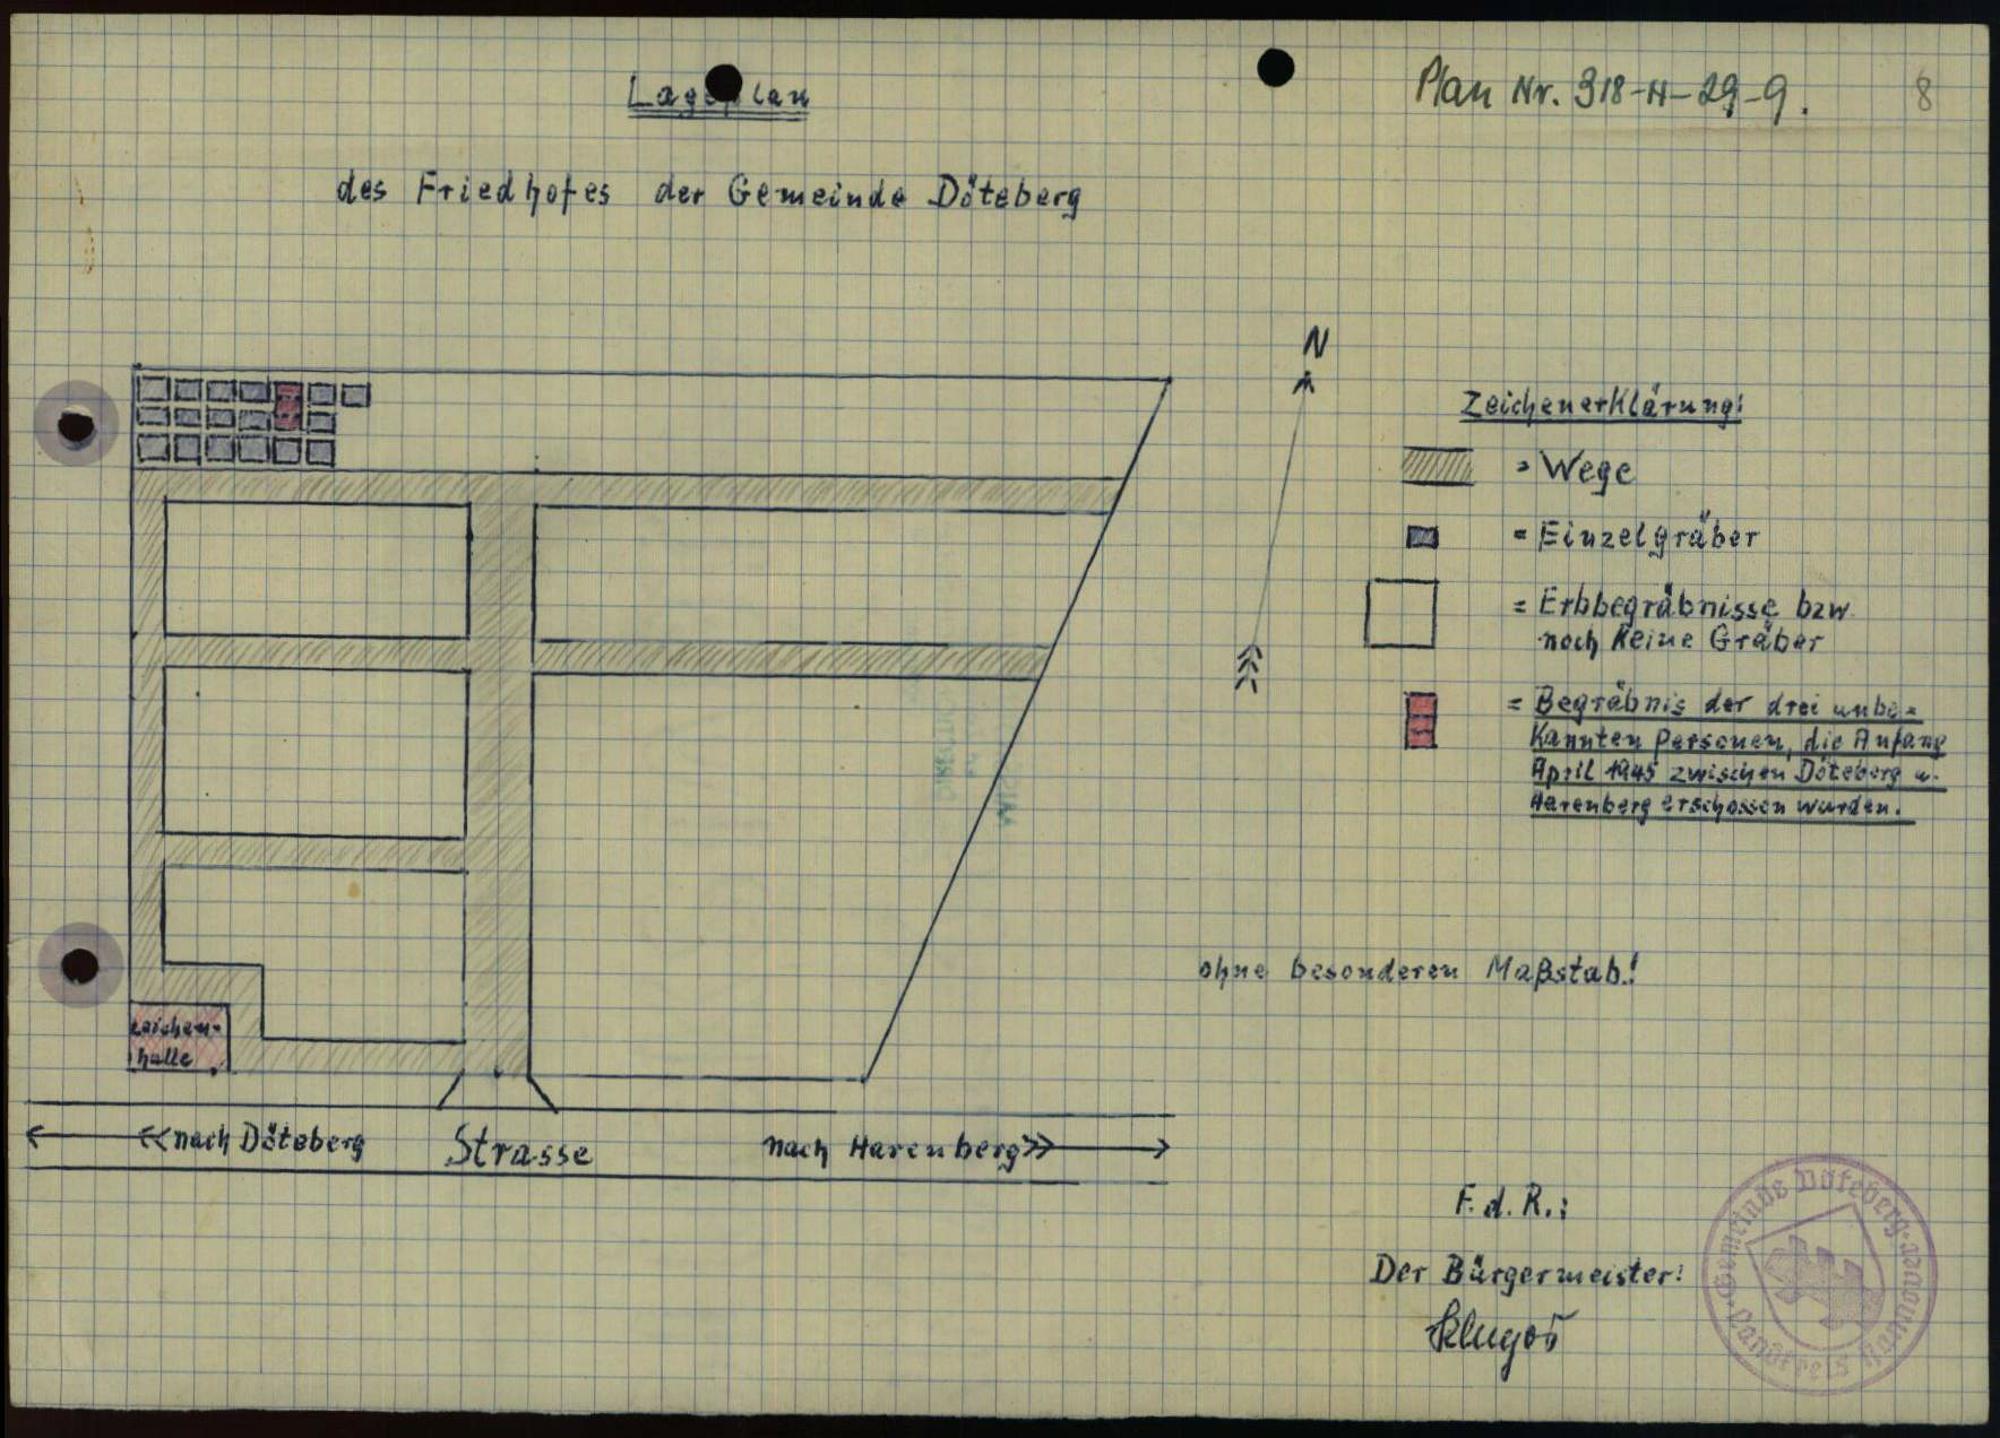 Lageplan
Plan Nr. 318-H-29-9.
8
des Friedhofes der Gemeinde Döteberg
N
Zeichenerklärung:
= Wege
= Einzelgräber
= Erbbegräbnisse bzw.
noch keine Gräber
= Begräbnis der drei unbe=
kannten Personen, die Anfang
April 1945 zwischen Döteberg u.
Harenberg erschossen wurden.
ohne besonderen Maßstab!
Leichen-
halle
nach Döteberg
Strasse
nach Harenberg
F. d. R.:
Der Bürgermeister:
Gemeinde Döteberg
Landkreis Hannover